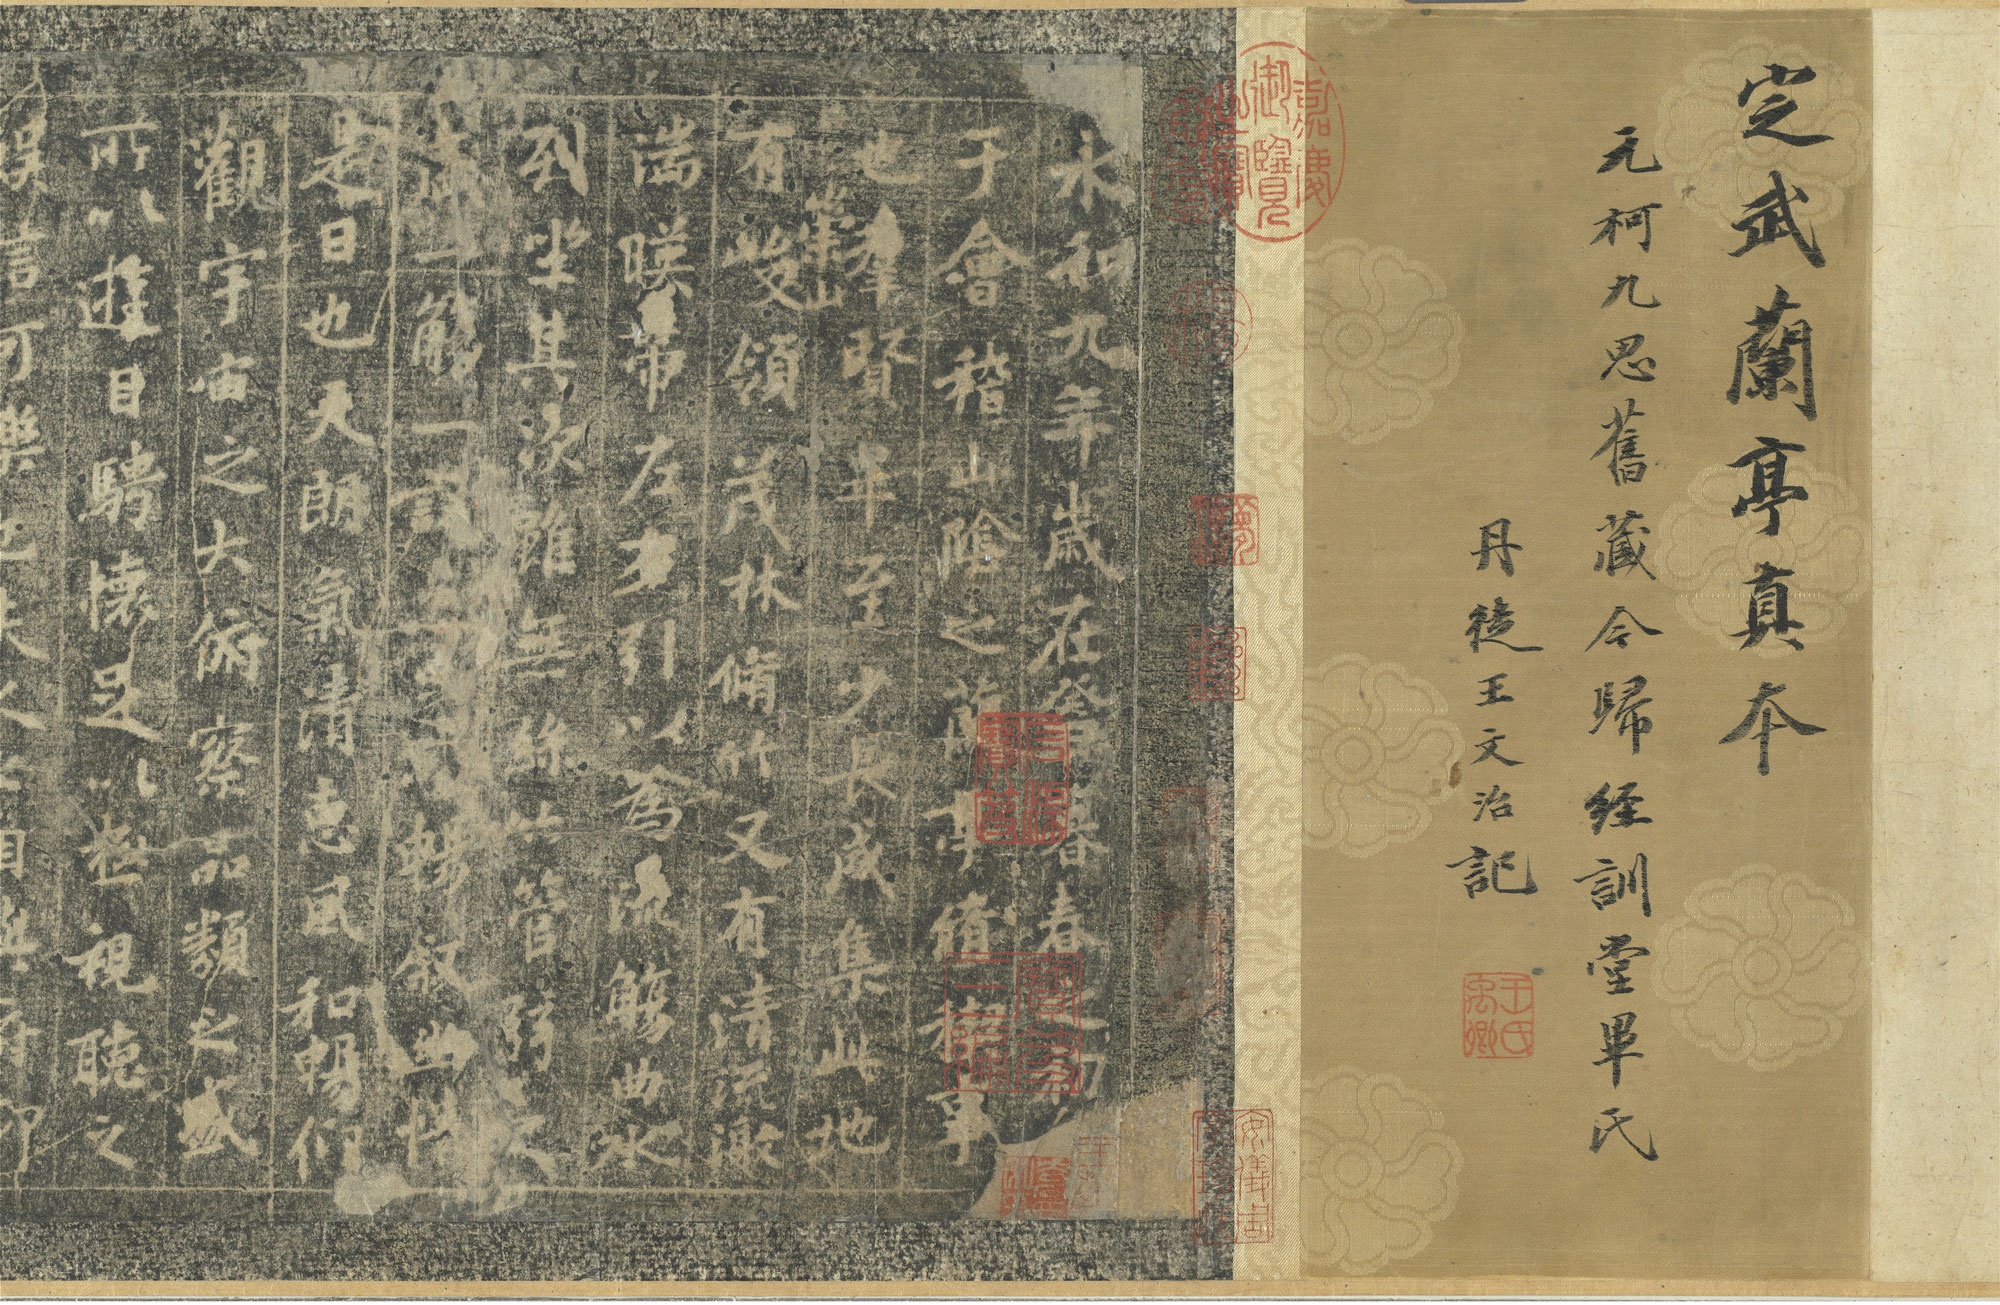 定武蘭亭真本
元柯九思舊藏今歸經訓堂畢氏
丹徒王文治記
王氏禹卿
嘉慶御覽之寶
永和九年歲在癸暮春之初
于會稽山陰之蘭亭脩稧事
也羣賢畢至少長咸集此地
有崇山峻領茂林脩竹又有清流激
湍暎帶左右引以為流觴曲水
列坐其次雖無絲竹管弦之
盛一觴一詠亦足以暢敘幽情
是日也天朗氣清惠風和暢仰
觀宇宙之大俯察品類之盛
所以遊目騁懷足以極視聽之
娛信可樂也夫人之相與俯仰